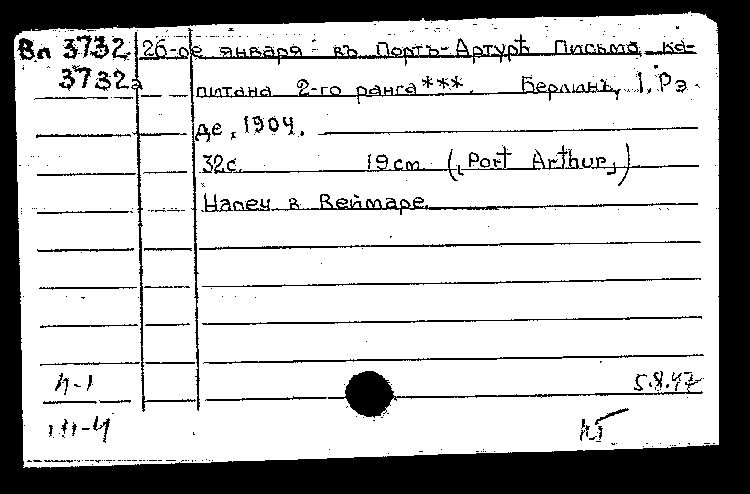 Вл 3732 26-ое января въ Портъ-Артурѣ Письма ка-
3732а питана 2-го ранга***. Берлинъ, I. Рэ
де, 1904.
32с. 19cm („Port Arthur„)
Напеч в Веймаре.
5.8.47
III-4